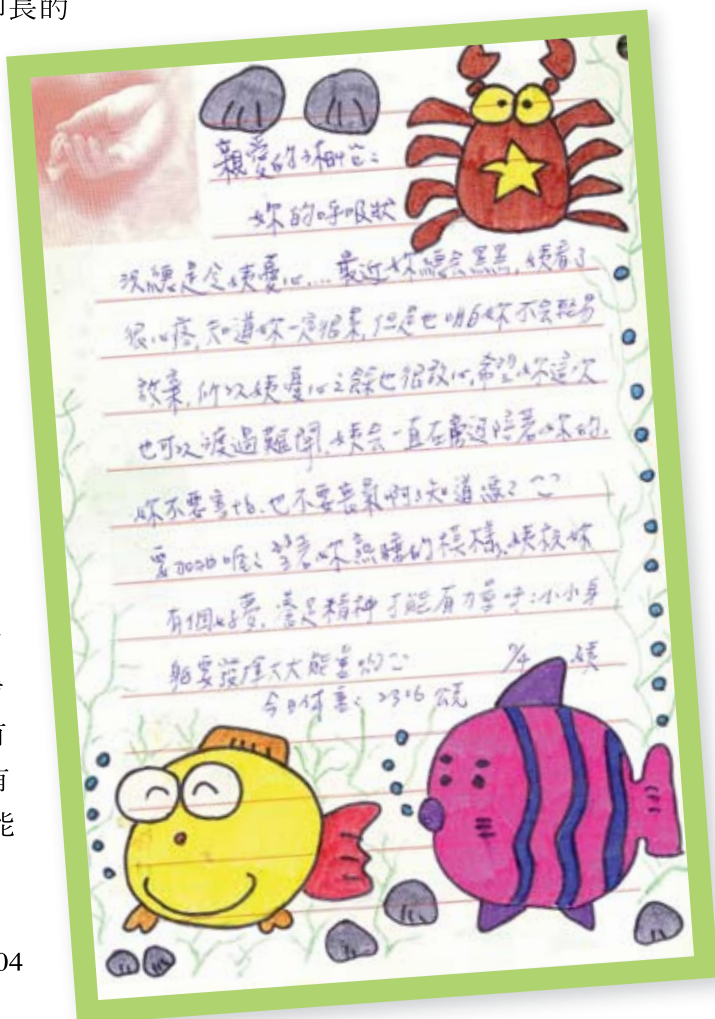 卩長的
親愛的
妳的呼吸狀
況總是令姨憂心....最近妳總會黑黑,姨看了
很心疼,知道妳一定很累,但是也明白妳不會輕易
放棄,所以姨憂心之餘也很放心,希望妳這次
也可以渡過難關,姨會一直在旁邊陪著妳的,
妳不要害怕,也不要喪氣啊!知道嗎?
要加油喔!望著妳熟睡的模樣,姨祝妳
有個好夢,養足精神才能有力量呼!小小身
軀要發揮大大能量喲 7/4 姨
今日体重:2306 公克
有
能
04